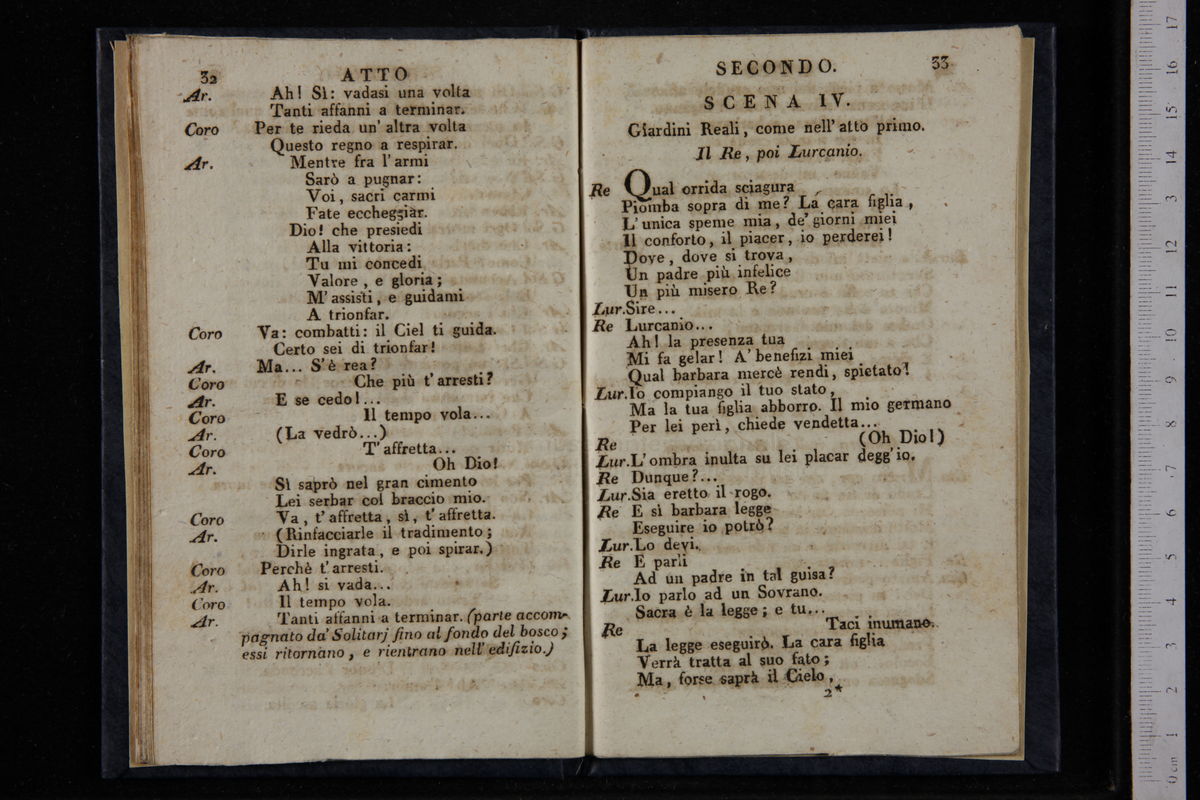 32 ATTO
Ar. Ah! Sì: vadasi una volta
Tanti affanni a terminar.
Coro Per te rieda un' altra volta
Questo regno a respirar.
Ar. Mentre fra l'armi
Sarò a pugnar:
Voi, sacri carmi
Fate eccheggiàr.
Dio! che presiedi
Alla vittoria:
Tu mi concedi
Valore, e gloria;
M'assisti, e guidami
A trionfar.
Coro Va: combatti: il Ciel ti guida.
Certo sei di trionfar!
Ar. Ma... S'è rea?
Coro Che più t'arresti?
Ar. E se cedo!...
Coro Il tempo vola...
Ar. (La vedrò...)
Coro T'affretta...
Ar. Oh Dio!
Sì saprò nel gran cimento
Lei serbar col braccio mio.
Coro Va, t'affretta, sì, t'affretta.
Ar. (Rinfacciarle il tradimento;
Dirle ingrata, e poi spirar.)
Coro Perchè t'arresti.
Ar. Ah! si vada...
Coro Il tempo vola.
Ar. Tanti affanni a terminar. (parte accom-
pagnato da' Solitarj fino al fondo del bosco;
essi ritornano, e rientrano nell' edifizio.)
SECONDO. 33
SCENA IV.
Giardini Reali, come nell' atto primo.
Il Re, poi Lurcanio.
Re Qual orrida sciagura
Piomba sopra di me? La cara figlia,
L'unica speme mia, de' giorni miei
Il conforto, il piacer, io perderei!
Dove, dove si trova,
Un padre più infelice
Un più misero Re?
Lur. Sire...
Re Lurcanio...
Ah! la presenza tua
Mi fa gelar! A' benefizi miei
Qual barbara mercè rendi, spietato!
Lur. Io compiango il tuo stato,
Ma la tua figlia abborro. Il mio germano
Per lei perì, chiede vendetta...
Re (Oh Dio!)
Lur. L'ombra inulta su lei placar degg'io.
Re Dunque?...
Lur. Sia eretto il rogo.
Re E sì barbara legge
Eseguire io potrò?
Lur. Lo devi.
Re E parli
Ad un padre in tal guisa?
Lur. Io parlo ad un Sovrano.
Sacra è la legge; e tu...
Re Taci inumano.
La legge eseguirò. La cara figlia
Verrà tratta al suo fato;
Ma, forse saprà il Cielo,
2*
0 cm 1 2 3 4 5 6 7 8 9 10 11 12 3 14 15 16 17